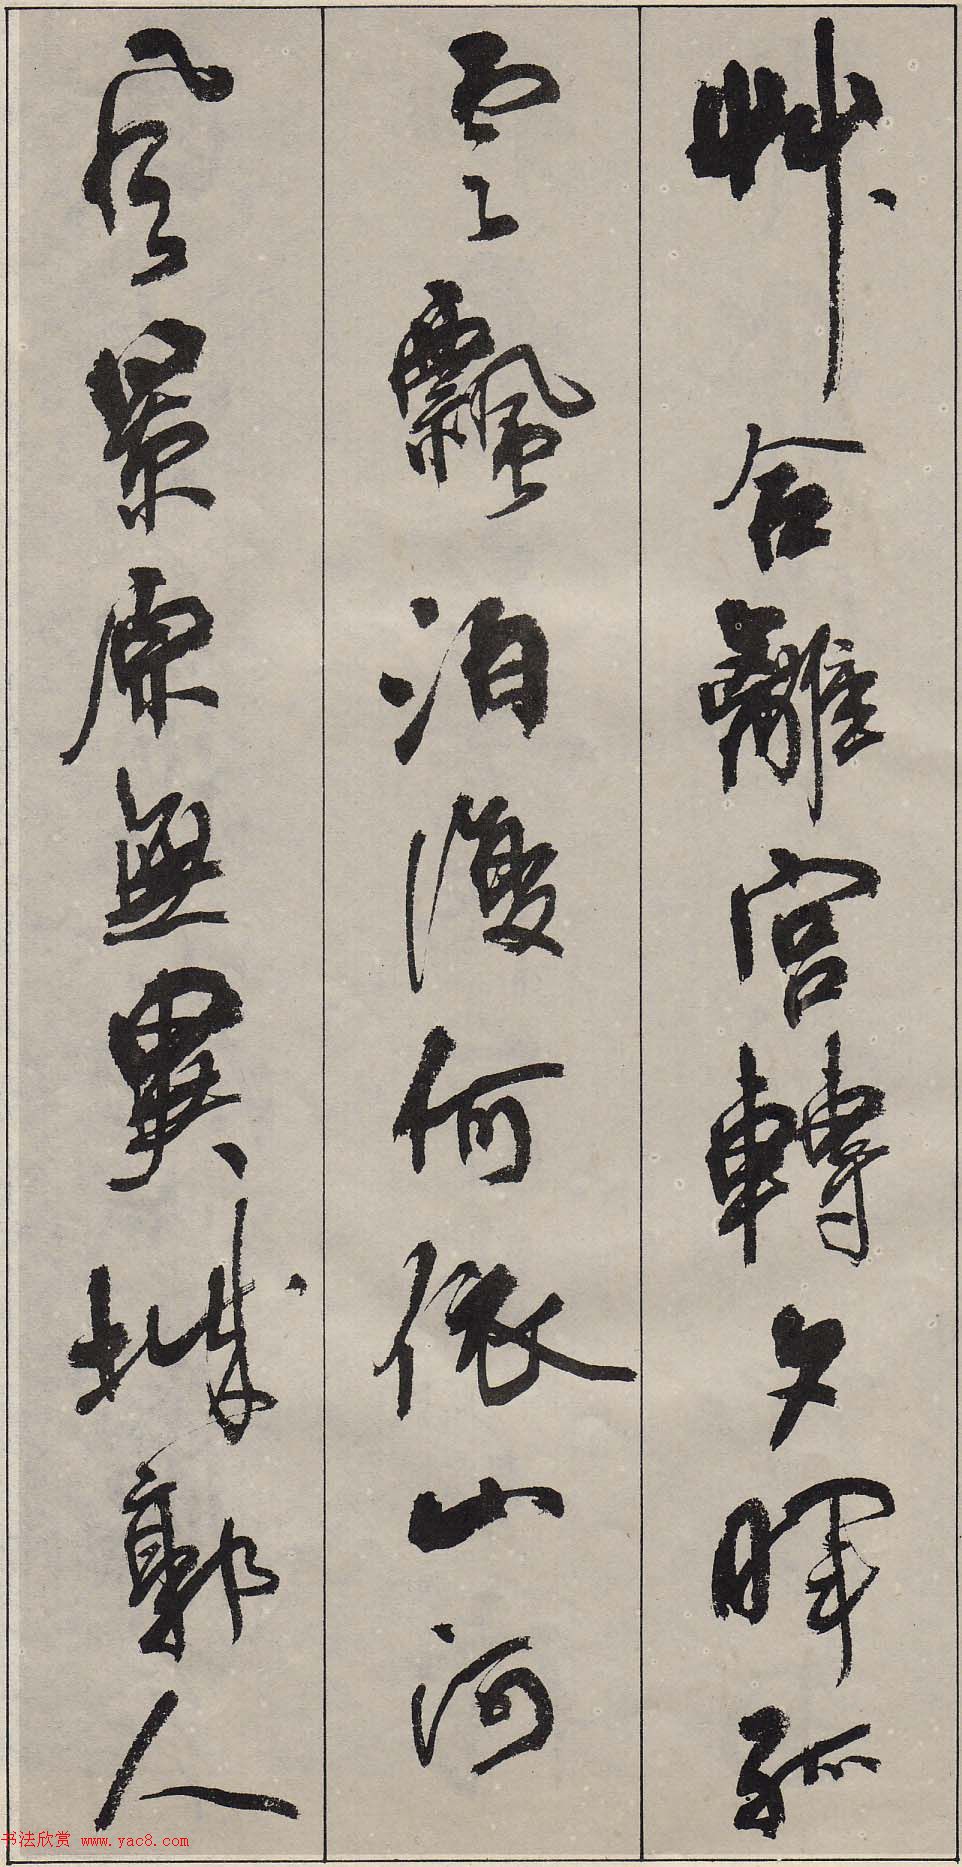 艸合離宮轉夕暉孤
雲飄泊復何依山河
風景原無異城郭人
书法欣赏 www.yac8.com